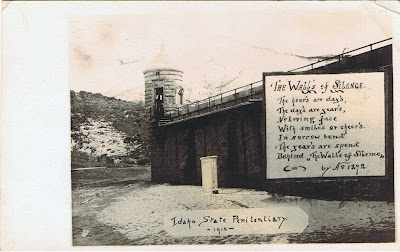 The Walls of Silence.
The hours are days,
The days are years,
No loving face
With smiles or cheers.
In sorrow bend
The years are spent
Behind "The Walls of Silence"
by No 1898.
Idaho State Penitentiary.
-1912-